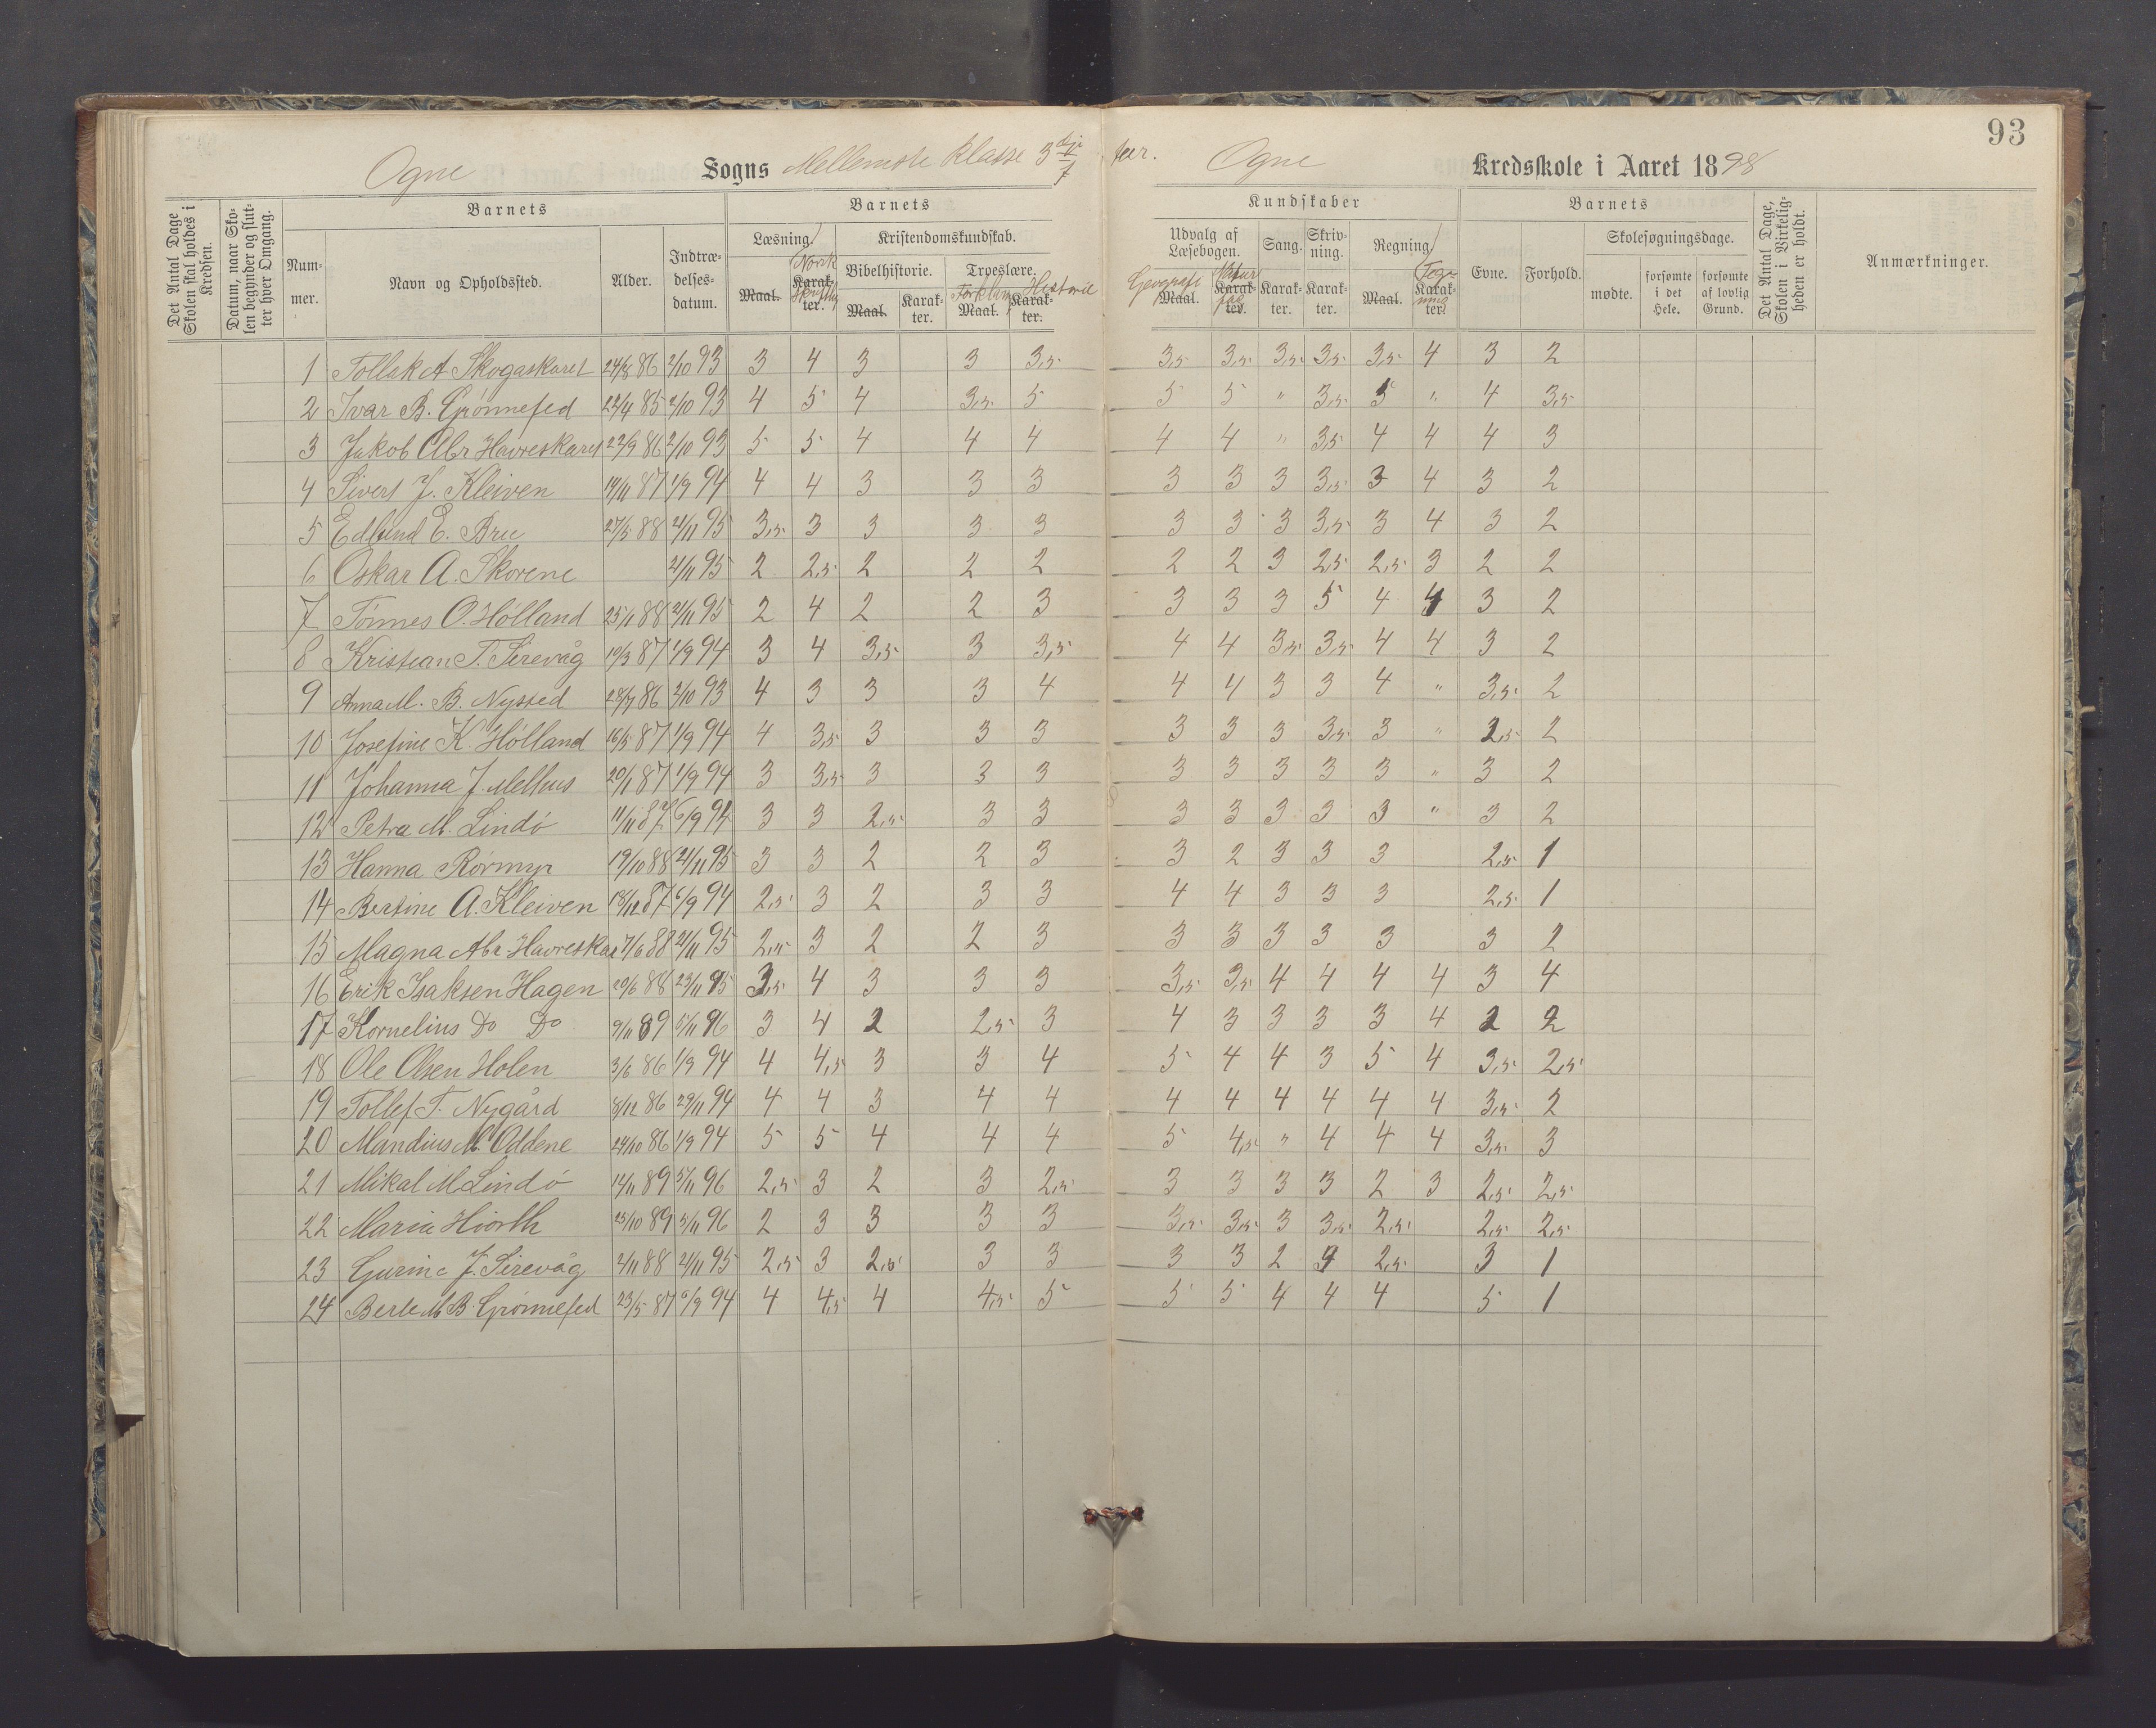 93
Ogne Sogns Mellemste Klasse 3die ter. Ogne Kredsskole i Aaret 1898
Det Antal Dage Skolen skal holdes i Kredsen.
Datum, naar Skolen begynder og slutter hver Omgang.
Barnets
Nummer.
Navn og Opholdssted.
Alder.
Indtrædelsesdatum.
Barnets
Læsning.
Maal.
Norsk
Karakter.
Kristendomskundskab.
Bibelhistorie.
Maal.
Karakter.
Troeslære.
Forklaring
Maal.
Historie
Karakter.
Kundskaber
Udvalg af Læsebogen.
Geografi
Maal.
Naturfag
Karakter.
Sang.
Karakter.
Skrivning.
Karakter.
Regning
Maal.
Tegning
Karakter.
Barnets
Evne.
Forhold.
Skolesøgningsdage.
mødte.
forsømte i det Hele.
forsømte af lovlig Grund.
Det Antal Dage, Skolen i Virkeligheden er holdt.
Anmærkninger.
1 Tollak A Skogaskaret 24/8 86 2/10 93 3 4 3 3 3,5 3,5 3,5 3,5 3,5 3,5 4 3 2
2 Ivar B. Grønnefed 22/4 85 2/10 93 4 5 4 3,5 5 5 5 " 3,5 5 " 4 3,5
3 Jakob Abr Havreskaret 22/9 86 2/10 93 5 5 4 4 4 4 4 " 3,5 4 4 4 3
4 Sivert J. Kleiven 19/11 87 1/9 94 4 4 3 3 3 3 3 3 3,5 3 4 3 2
5 Edlund E. Bru 27/5 88 21/11 95 3,5 3 3 3 3 3 3 3 3,5 3 4 3 2
6 Oskar A. Skorene 21/11 95 2 2,5 2 2 2 2 2 3 2,5 2,5 3 2 2
7 Tønnes O. Hølland 25/1 88 21/11 95 2 4 2 2 3 3 3 3 5 4 4 3 2
8 Kristian T. Sirevåg 10/3 87 1/9 94 3 4 3,5 3 3,5 4 4 3,5 3,5 4 4 3 2
9 Anna M. B. Nysted 28/7 86 2/10 93 4 3 3 3 4 4 4 3 3 4 " 3,5 2
10 Josefine K. Hølland 16/5 87 1/9 94 4 3,5 3 3 3 3 3 3 3,5 3 " 2,5 2
11 Johanna J. Melhus 20/1 87 1/9 94 3 3,5 3 3 3 3 3 3 3 3 " 3 2
12 Petra M. Lindø 11/11 87 6/9 94 3 3 2,5 3 3 3 3 3 3 3 " 3 2
13 Hanna Rørmyr 19/10 88 21/11 95 3 3 2 2 3 3 2 3 3 3 2,5 1
14 Bertine A. Kleiven 18/12 87 6/9 94 2,5 3 2 3 3 4 4 3 3 3 2,5 1
15 Magna Abr Havreskar 7/6 88 21/11 95 2,5 3 2 2 3 3 3 3 3 3 3 2
16 Erik Isaksen Hagen 20/6 88 23/11 95 3,5 4 3 3 3 3,5 3,5 4 4 4 4 3 4
17 Kornelius Do Do 9/11 89 5/11 96 3 4 2 2,5 3 4 3 3 3 3 4 2 2
18 Ole Olsen Holen 3/6 86 1/9 94 4 4,5 3 3 4 5 4 4 3 5 4 3,5 2,5
19 Tollef T. Nygård 8/12 86 29/11 94 4 4 3 4 4 4 4 4 4 4 4 3,5 2
20 Mandius M. Oddene 24/10 86 1/9 94 5 5 4 4 4 5 4,5 " 4 4 4 3,5 3
21 Mikal M Lindø 14/11 89 5/11 96 2,5 3 2 3 2,5 3 3 3 3 2 3 2,5 2,5
22 Maria Hiorth 25/10 89 5/11 96 2 3 3 3 3 3,5 3,5 3 3,5 2,5 2,5 2,5
23 Gurine J. Sirevåg 2/11 88 21/11 95 2,5 3 2,5 3 3 3 3 2 3 2,5 3 1
24 Berte M B. Grønnefed 23/5 87 6/9 94 4 4,5 4 4,5 5 5 5 4 4 4 5 1